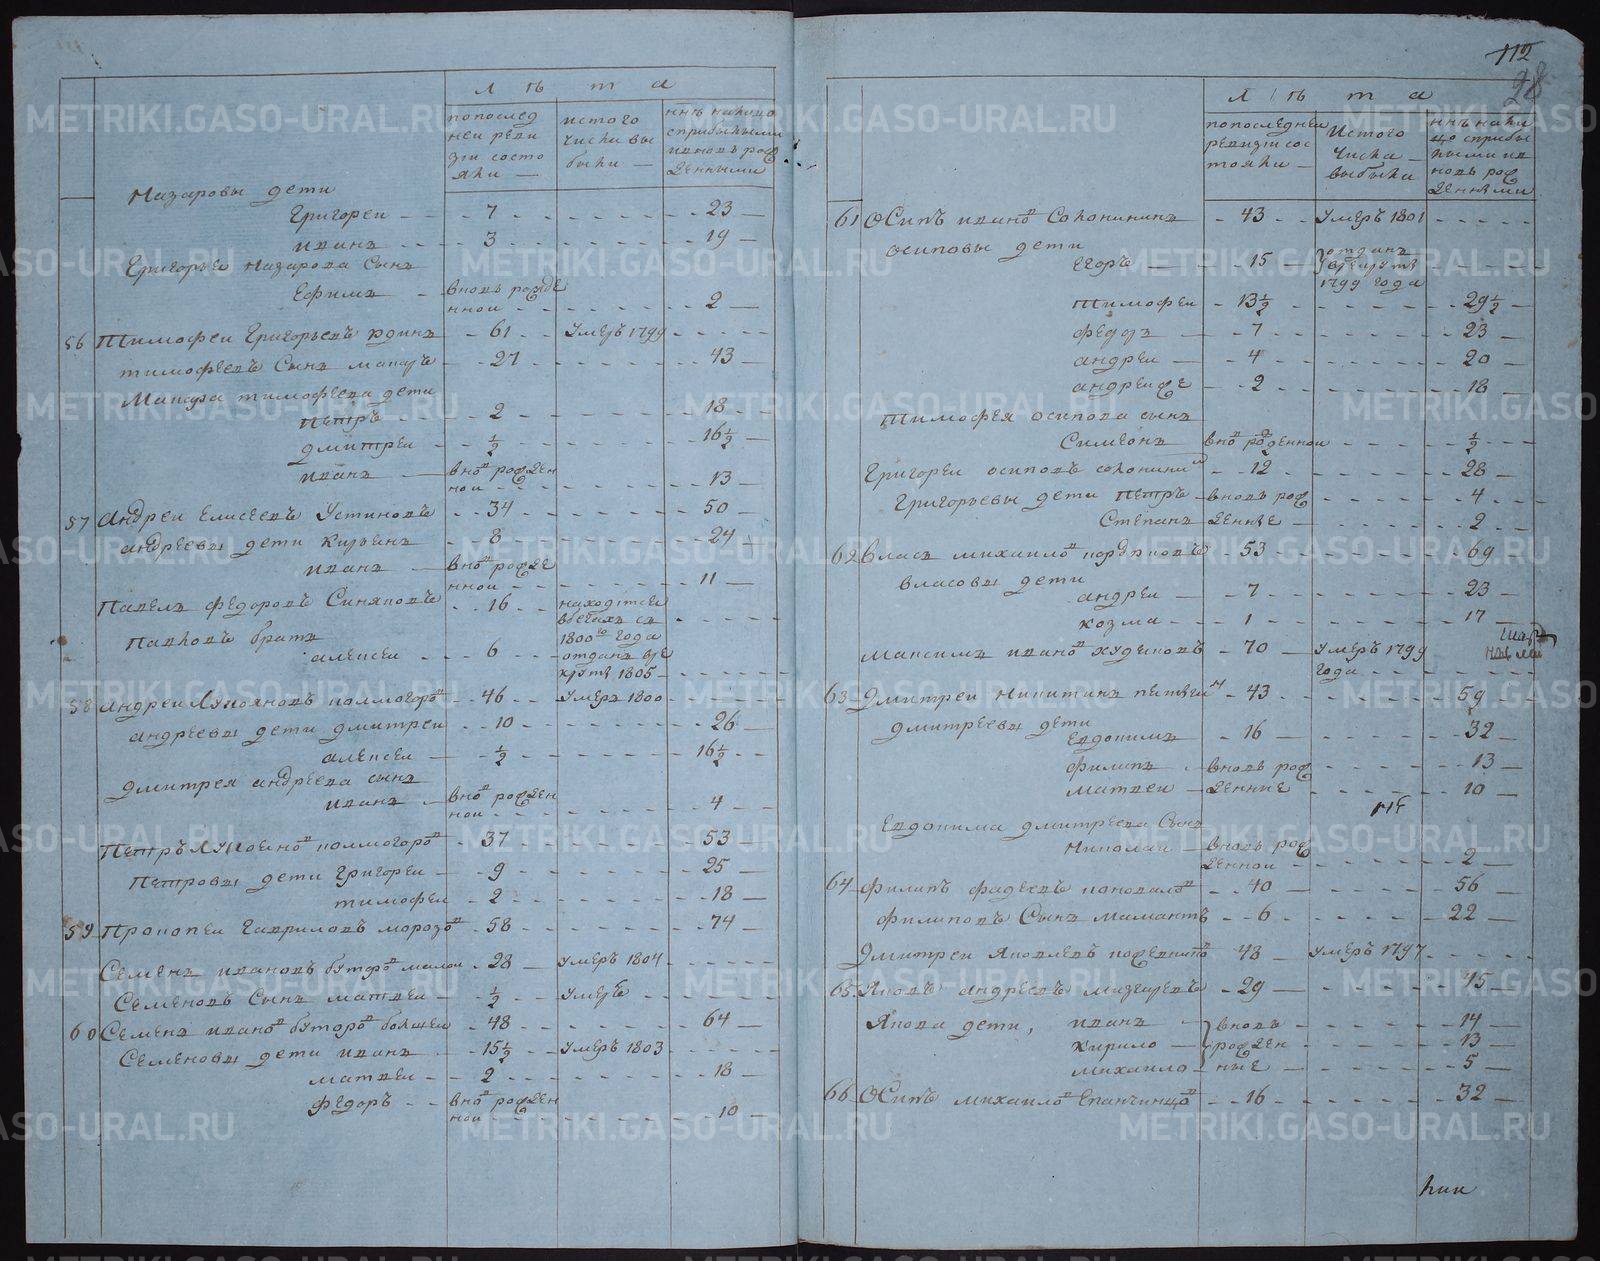 Л ѣ т а
попослед
ней реви
зіи состо
яли —
истого
числа вы
были —
ннѣ налицо
сприбылыми
ивновь рож
денными
Назаровы дети
Григореи — 7 — 23 —
иванъ — 3 — 19 —
Григорьев назарова сынъ
Ефимъ — вновь рожде
нной — 2 —
56 Тимофеи Григорьевъ — 61 — умеръ 1799
тимофеевъ сынъ макаръ — 27 — 43 —
Макара тимофеева дети
петръ — 2 — 18 —
дмитреи — ½ — 16½ —
иванъ — вновь рожден
ной — 13 —
57 Андреи Елисеевъ Устиновъ — 34 — 50 —
андреевы дети — 8 — 24
иванъ — вновь рожде
нной — 11 —
Павелъ федоровъ Синяковъ — 16 — находится
вбегахъ съ
1800го года
Павловъ братъ
алексеи — 6 — отданъ вре
круты 1805
58 Андреи колмогоровъ — 46 — умеръ 1800
андреевы дети дмитреи — 10 — 26 —
алексеи — ½ — 16½ —
Дмитрея андреева сынъ
иванъ — вновь рожден
ной — 4 —
Петръ колмогоровъ — 37 — 53 —
Петровы дети григореи — 9 — 25 —
тимофеи — 2 — 18 —
59 Прокопеи Гавриловъ морозовъ — 58 — 74 —
Семенъ ивановъ буторовъ малои — 28 — умеръ 1804
Семеновъ сынъ матвеи — ½ — умеръ
60 Семенъ ивановъ буторовъ болшеи — 48 — 64 —
Семеновы дети иванъ — 15½ — умеръ 1803
матвеи — 2 — 18 —
федоръ — вновь рожден
ной — 10 —
112
98
Л ѣ т а
попоследнеи
ревизіи сос
тояли —
Истого
числа
выбыли
ннѣ нали
цо сприбы
лыми ив
новь рож
денными
61 Осипъ ивановъ — 43 — умеръ 1801
осиповы дети
Егоръ — 15 — отданъ
врекруты
1799 года
тимофеи — 13½ — 29½ —
федоръ — 7 — 23 —
андреи — 4 — 20 —
андреиже — 2 — 18 —
Тимофея осипова сынъ
Симеонъ — вновь рожденнои — ½
Григореи осиповъ — 12 — 28 —
Григорьевы дети Петръ — вновь рож — 4 —
Степанъ — денные — 2 —
62 Власъ михаиловъ — 53 — 69 —
власовы дети
андреи — 7 — 23 —
козма — 1 — 17 —
максимъ ивановъ худяковъ — 70 — умеръ 1799
года
63 Дмитреи никитинъ — 43 — 59 —
дмитреевы дети
Евдокимъ — 16 — 32 —
филипъ — вновь рож — 13 —
матвеи — денные — 10 —
Евдокима дмитреева сынъ
николаи — вновь рож
деннои — 2 —
64 филипъ фадеевъ коновалов — 40 — 56 —
филиповъ сынъ мамантъ — 6 — 22 —
Дмитреи Яковлевъ кожевниковъ — 48 — умеръ 1797
65 Яковъ андреевъ — 29 — 45 —
Якова дети, иванъ — вновь — 14 —
кирило — рожден — 13 —
михаило — ные — 5 —
66 Осипъ михаиловъ Епанчинцовъ — 16 — 32 —
METRIKI.GASO-URAL.RU